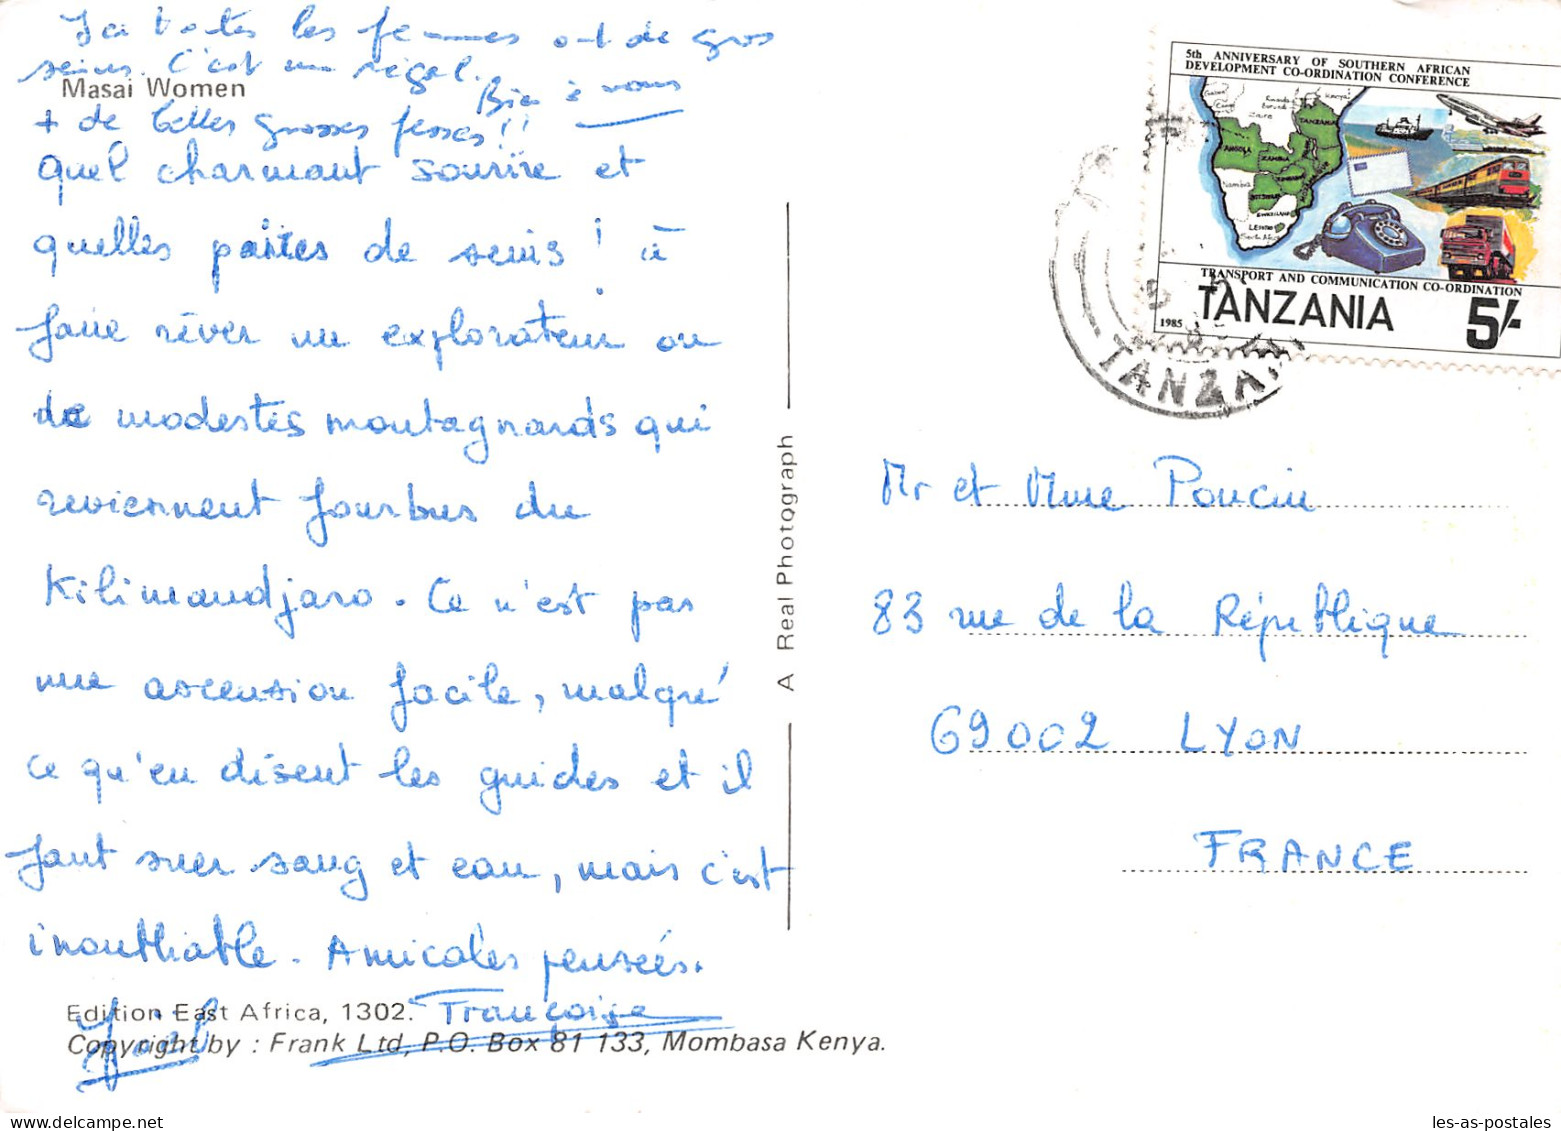 Ici toutes les femmes ont de gros
seins. C'est un régal.
Bien à vous
+ de belles grosses fesses !!
Masai Women
Quel charmant sourire et
quelles paires de seins ! à
faire rêver un explorateur ou
de modestes montagnards qui
reviennent fourbus du
Kilimandjaro. Ce n'est pas
une ascension facile, malgré
ce qu'en disent les guides et il
faut suer sang et eau, mais c'est
inoubliable. Amicales pensées.
Françoise
Joël
Edition East Africa, 1302.
Copyright by : Frank Ltd, P.O. Box 81 133, Mombasa Kenya.
A Real Photograph
5th ANNIVERSARY OF SOUTHERN AFRICAN
DEVELOPMENT CO-ORDINATION CONFERENCE
Kenya
Zaire
TANZANIA
ANGOLA
ZAMBIA
Namibia
LESOTHO
South Africa
TRANSPORT AND COMMUNICATION CO-ORDINATION
1985 TANZANIA 5/-
TANZA
Mr et Mme Poncin
83 rue de la République
69002 LYON
FRANCE
les-as-postales